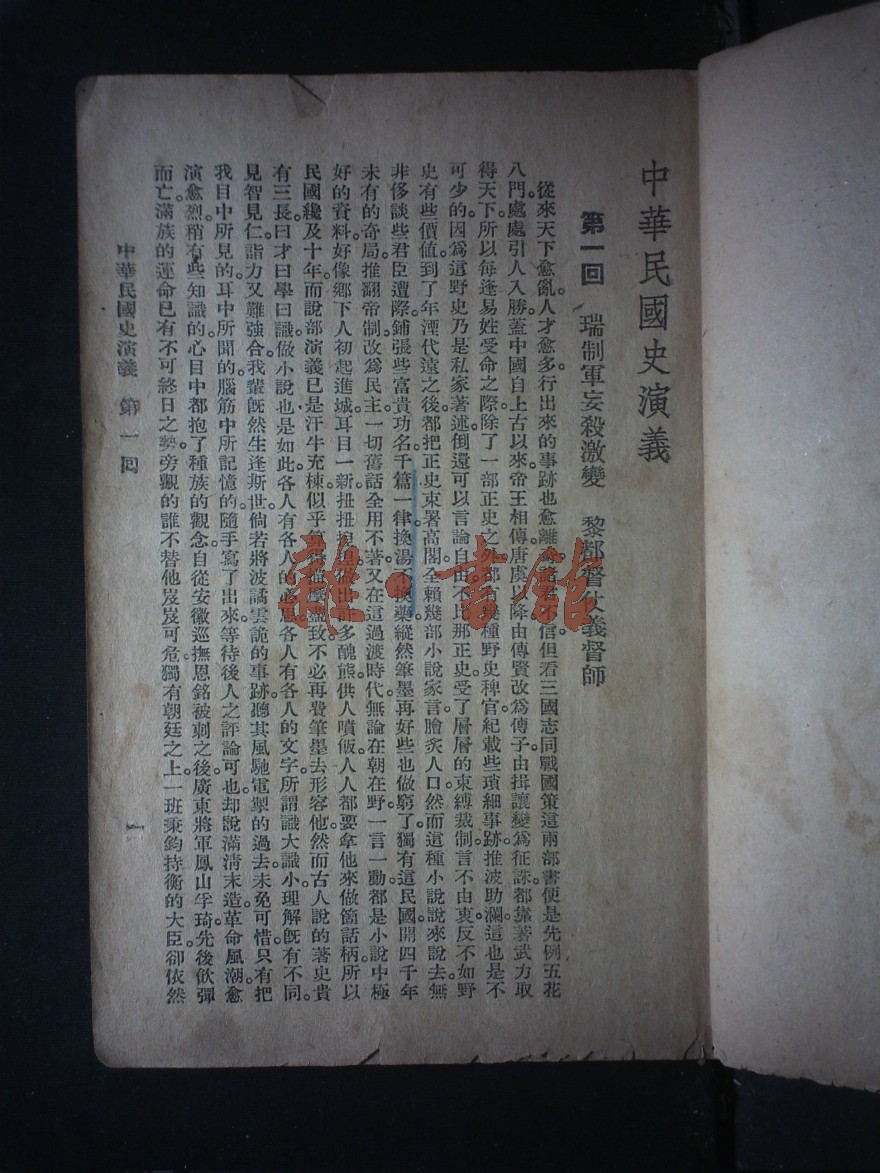 中華民國史演義
第一回　瑞制軍妄殺激變　黎都督仗義督師
從來天下愈亂。人才愈多。行出來的事跡也愈離奇。不信但看三國志同戰國策這兩部書便是先例五花
八門。處處引人入勝。蓋中國自上古以來。帝王相傳。唐虞以降。由傳賢改爲傳子。由揖讓變爲征誅。都靠著武力取
得天下。所以每逢易姓受命之際。除了一部正史之外。都有幾種野史稗官紀載些瑣細事跡。推波助瀾。這也是不
可少的。因爲這野史乃是私家著述。倒還可以言論自由。不比那正史受了層層的束縛裁制。言不由衷。反不如野
史有些價值。到了年湮代遠之後。都把正史束署高閣。全賴幾部小說家言。膾炙人口。然而這種小說。說來說去。無
非侈談些君臣遭際。鋪張些富貴功名。千篇一律。換湯不換藥。縱然筆墨再好些。也做窮了。獨有這民國。開四千年
未有的奇局。推翻帝制。改爲民主。一切舊話。全用不著。又在這過渡時代。無論在朝在野。一言一動。都是小說中極
好的資料。好像鄉下人初起進城。耳目一新。扭扭捏捏。做出許多醜態。供人噴飯。人人都要拿他來做箇話柄。所以
民國纔及十年。而說部演義。已是汗牛充棟。似乎窮盡致。不必再費筆墨去形容他。然而古人說的著史貴
有三長。曰才曰學曰識。做小說也是如此。各人有各人的心思。各人有各人的文字。所謂識大識小。理解旣有不同。
見智見仁。詣力又難強合。我輩旣然生逢斯世。倘若將波譎雲詭的事跡。聽其風馳電掣的過去。未免可惜。只有把
我目中所見的。耳中所聞的。腦筋中所記憶的。隨手寫了出來。等待後人之評論可也。却說滿淸末造。革命風潮。愈
演愈烈。稍有些知識的。心目中都抱了種族的觀念。自從安徽巡撫恩銘被刺之後。廣東將軍鳳山孚琦。先後飲彈
而亡。滿族的運命。已有不可終日之勢。旁觀的誰不替他岌岌可危。獨有朝廷之上。一班秉鈞持衡的大臣。卻依然
中華民國史演義　第一回
一
雜·書館